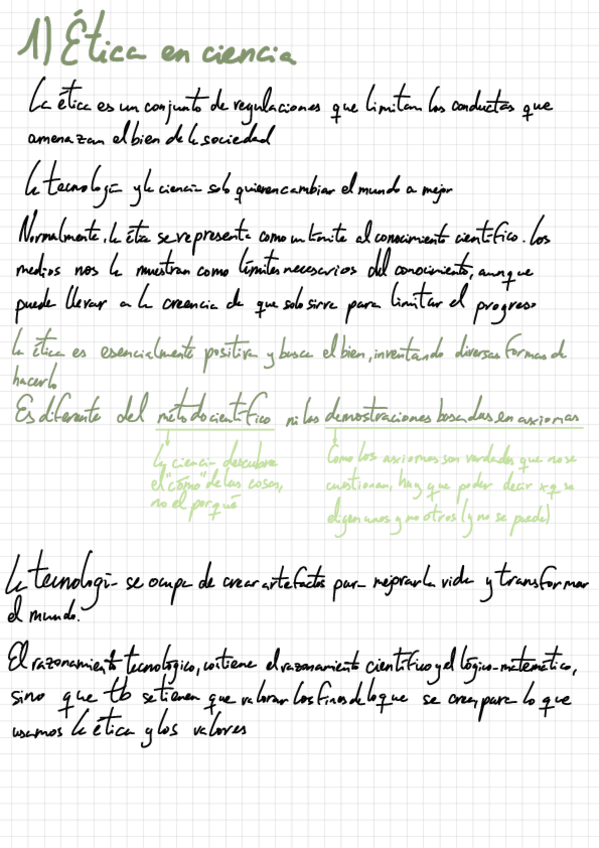 1) Ética en ciencia
La ética es un conjunto de regulaciones que limitan las conductas que
amenazan el bien de la sociedad
La tecnología y la ciencia solo quieren cambiar el mundo a mejor
Normalmente, la ética se representa como un límite al conocimiento científico. Los
medios nos la muestran como límites necesarios del conocimiento, aunque
puede llevar a la creencia de que solo sirve para limitar el progreso
La ética es esencialmente positiva y busca el bien, inventando diversas formas de
hacerlo
Es diferente del método científico ni las demostraciones basadas en axiomas
La ciencia descubre
el "cómo" de las cosas,
no el por qué
Como los axiomas son verdades que no se
cuestionan, hay que poder decir xq se
eligen unos y no otros (y no se puede)
La tecnología se ocupa de crear artefactos para mejorar la vida y transformar
el mundo.
El razonamiento tecnológico, contiene el razonamiento científico y el lógico-matemático,
sino que tb se tienen que valorar los fines de lo que se crea, para lo que
usamos la ética y los valores